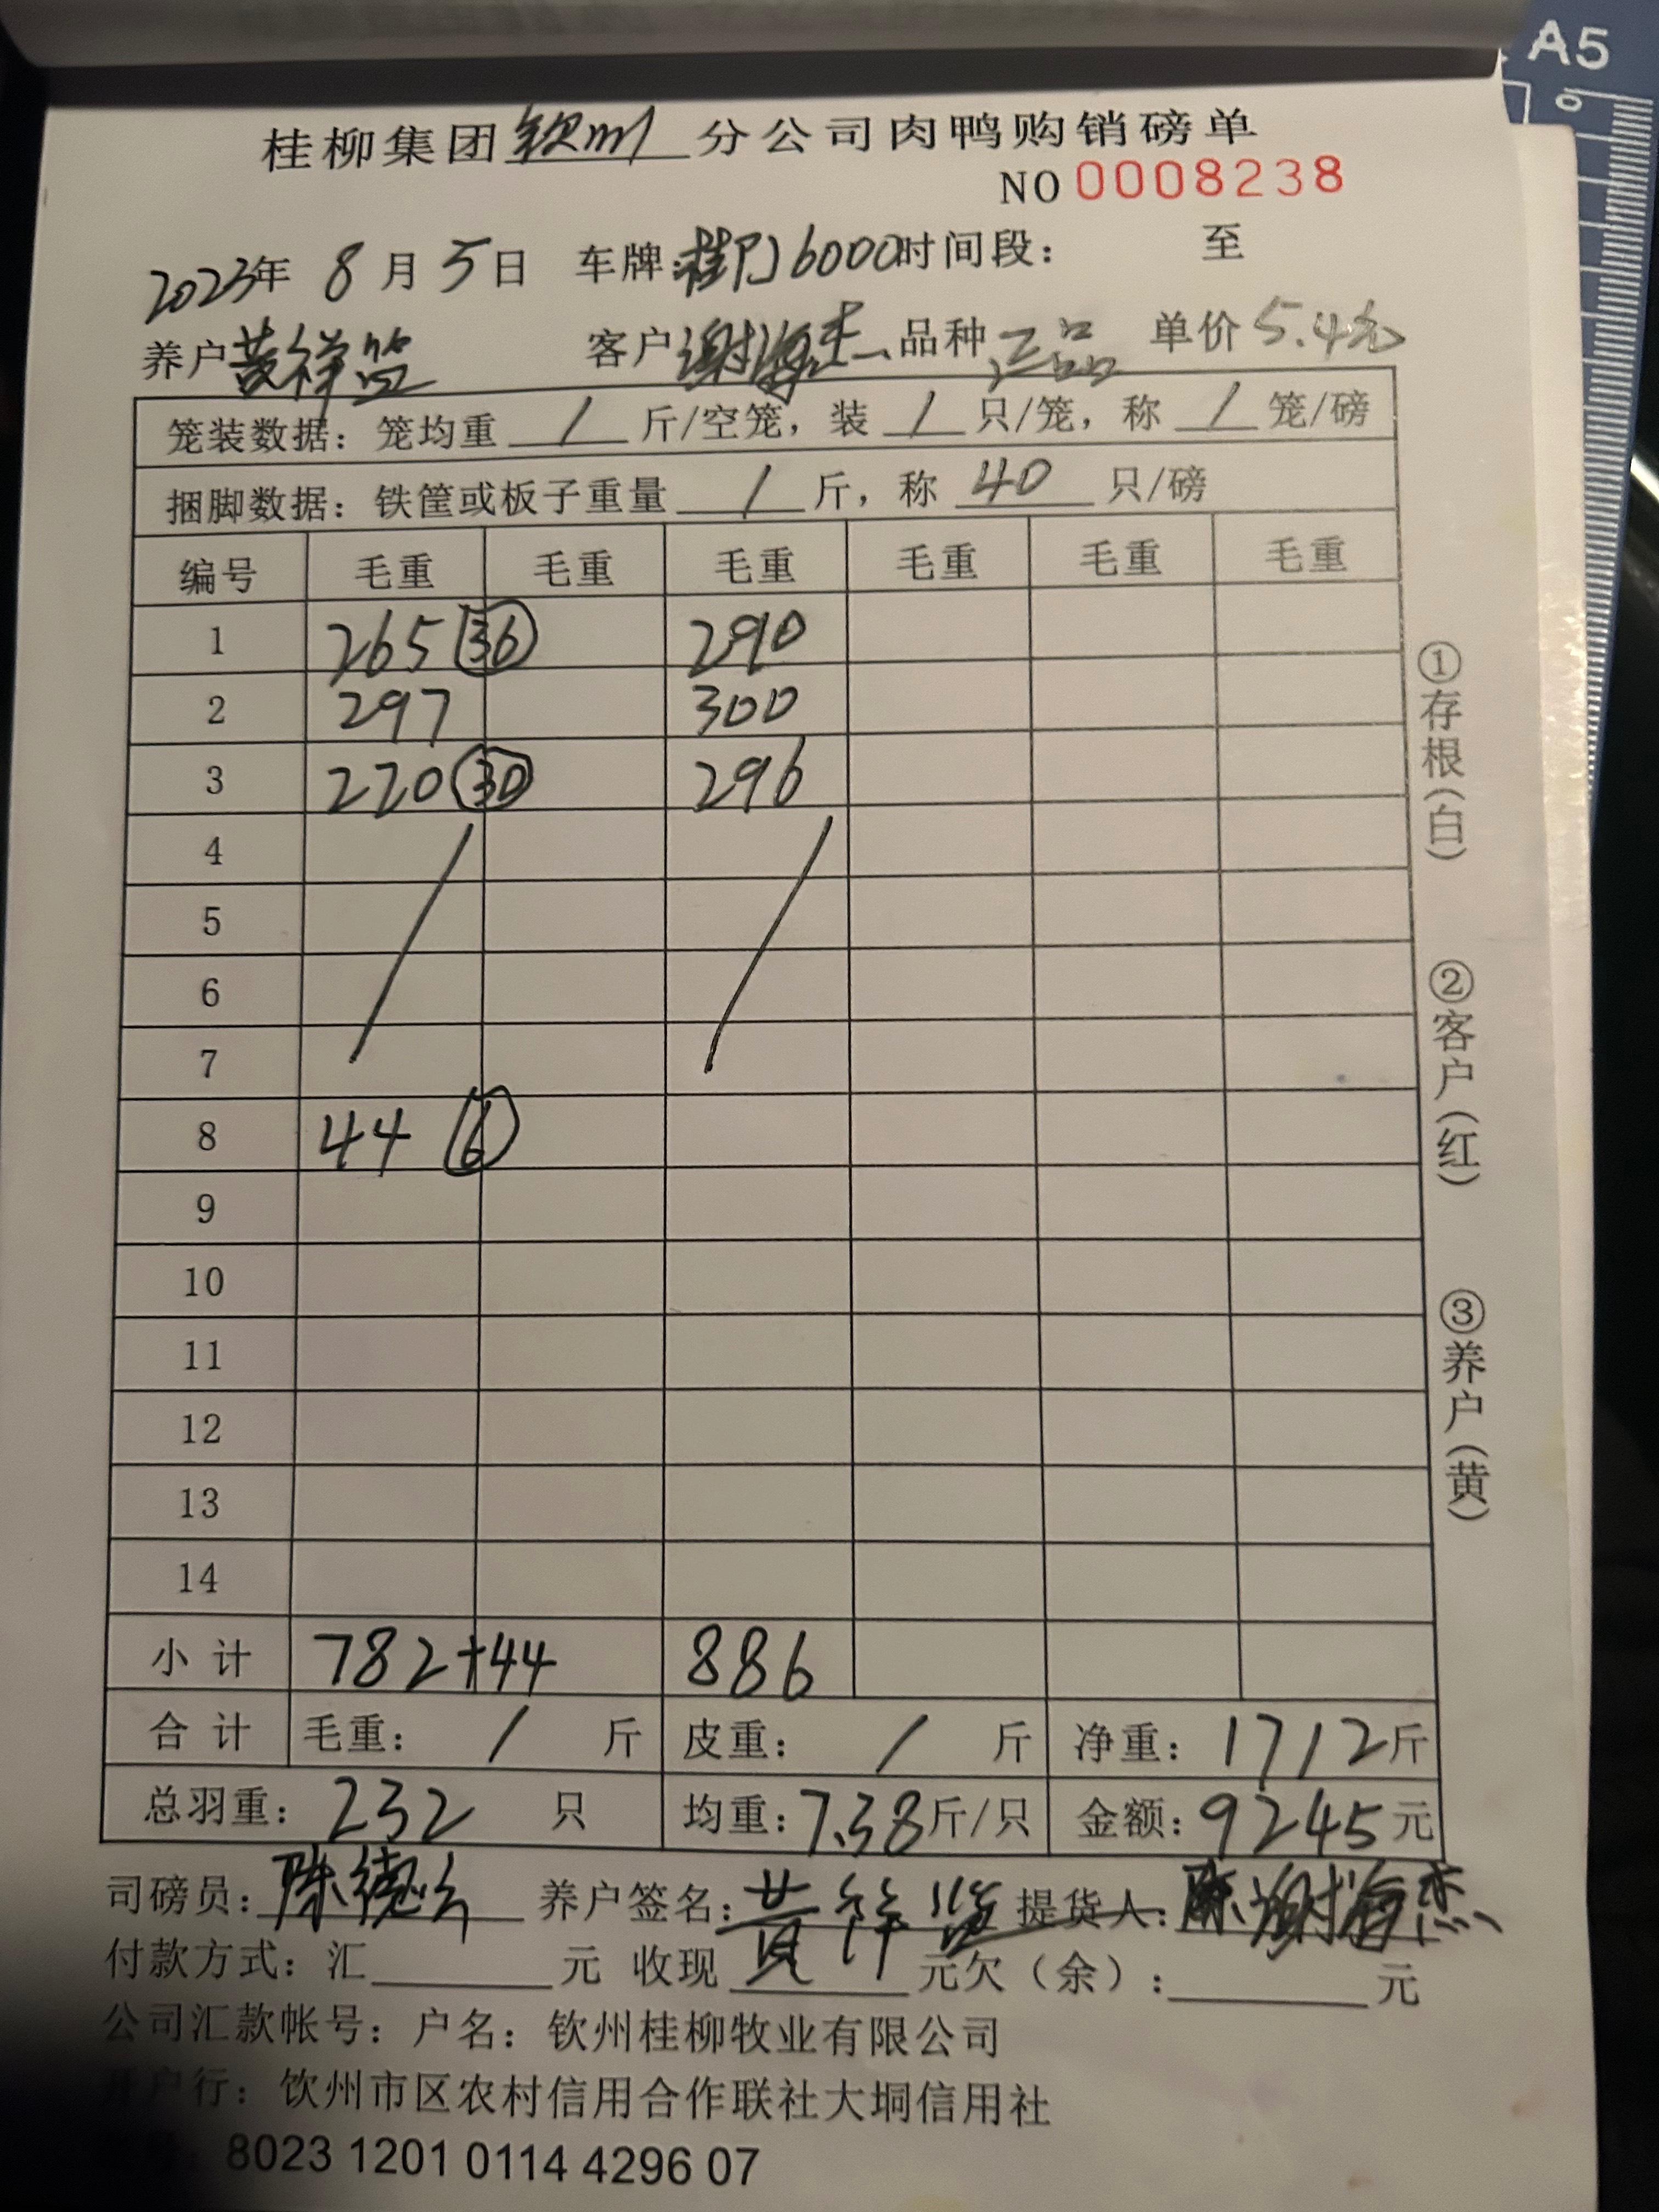 A5
桂柳集团钦州分公司肉鸭购销磅单
NO 0008238
2023年 8月5日 车牌: 6000 时间段: 至
养户黄祥 客户谢海杰 品种正品 单价5.4元
笼装数据: 笼均重 / 斤/空笼, 装 / 只/笼, 称 / 笼/磅
捆脚数据: 铁筐或板子重量 / 斤, 称 40 只/磅
编号 毛重 毛重 毛重 毛重 毛重 毛重
1 265 (36) 290
2 297 300
3 220 (30) 296
4
5
6
7
8 44 (6)
9
10
11
12
13
14
小计 782+44 886
合计 毛重: / 斤 皮重: / 斤 净重: 1712斤
总羽重: 232 只 均重: 7.38斤/只 金额: 9245元
司磅员: 陈德 养户签名: 黄祥 提货人: 谢海杰
付款方式: 汇 元 收现 元 欠(余): 元
公司汇款帐号: 户名: 钦州桂柳牧业有限公司
开户行: 钦州市区农村信用合作联社大垌信用社
8023 1201 0114 4296 07
①存根(白)
②客户(红)
③养户(黄)